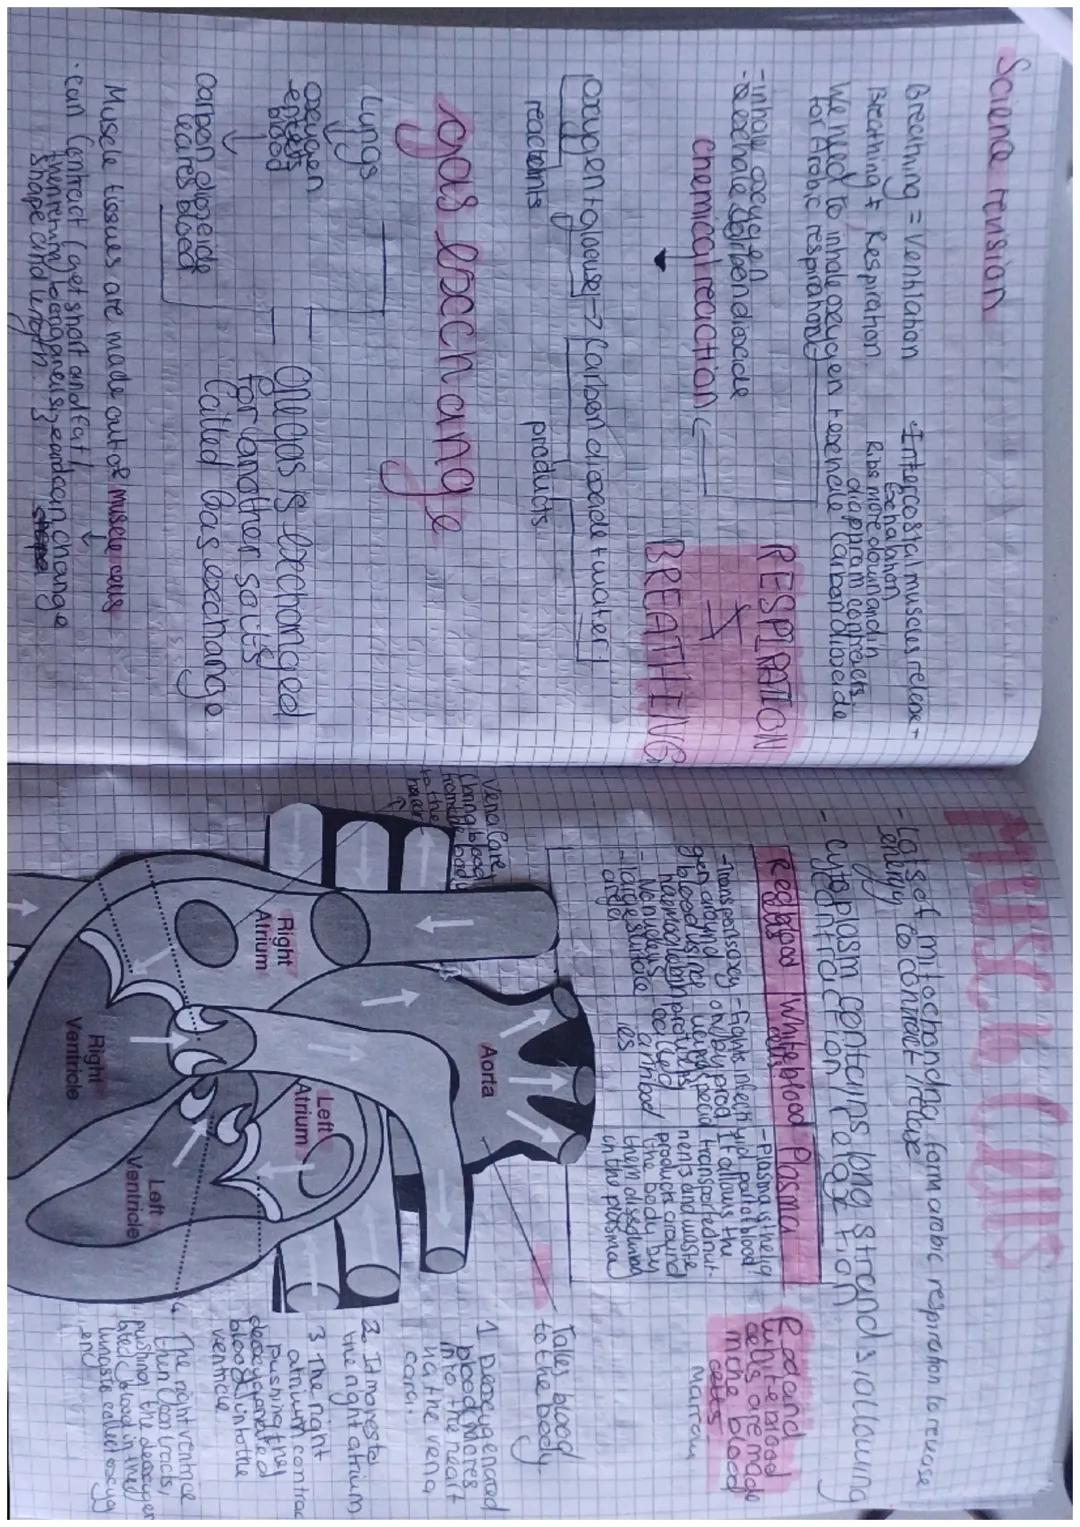 Science revision
Breathing = Ventilation
Breathing ≠ Respiration
We need to inhale oxygen + exhale carbon dioxide
for Arobic respiration
Intercostal muscles relexe +
Exhalation
Ribs move down and in
diappram contracts.
-inhale oxcygen
-exhale carbondioxcide
chemical reaction
RESPIRATION
≠
BREATHING
Oxcygen + glouse → Carbon dioxcide + water
reactants
products
gas Exchange
Lungs
oxcygen
enters
blood
carbon dioxcide
leares blood
One gas is Exchanged
for another so its
Called Gas exchange
Muscle tissues are made out of muscle cells
· can Contract (get short and fat)
then return to origanel size and can change
shape and length
MUSCLE CELLS
- Lots of mitochondria, for m arobic respiration to release
energy to contract/relaxe
- Cytoplasm contains long strands allouing
contraction/relaxtion
Red blood
cells
White blood
cells
Plasma
-Transports oxcy-
gen around
blood using
haemoglobin
- No nucleus
- large surface
area
- Fights infecti
on by prod
ucing special
proteins
called
antibod
ies
- Plasma is the liq
uid part of blood
I allows the
transported nut-
rients and waste
products around
the body by
them dissolving
in the plasma
Red and
white blood
cells are made
in the blood
marrow
Vena Cave
(bring blood
from the body
to the
heart
Aorta
Right
Atrium
Left
Atrium
Right
Ventricle
Left
Ventricle
Takes blood
to the body.
1. Deoxcygenated
blood moves
into the heart
via the vena
cara.
2. It moves to
the right atrium
3. The right
atrium contrac
pushing the
deoxcygenated
blood into the
ventricle
4. The right ventrice
then contracts,
pushing the deoxcygen
ated blood in the
lungs to collect oxcyg
en